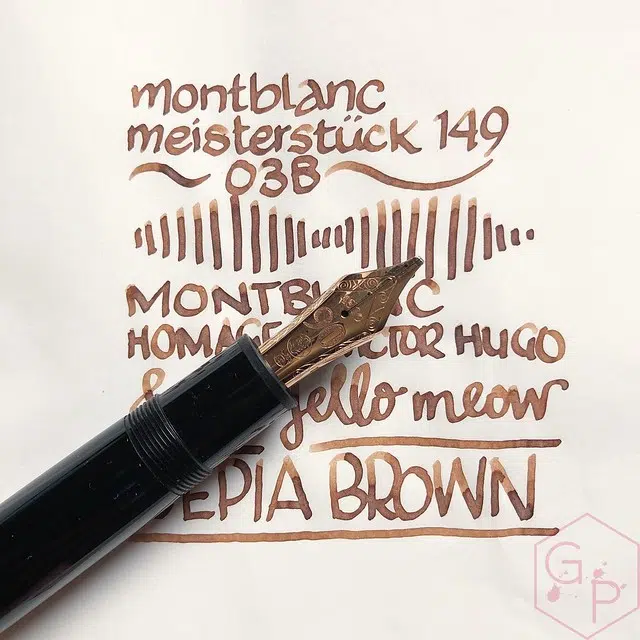 montblanc
meisterstück 149
~ O3B ~
MONTBLANC
HOMAGE VICTOR HUGO
& jello meow
SEPIA BROWN
GP